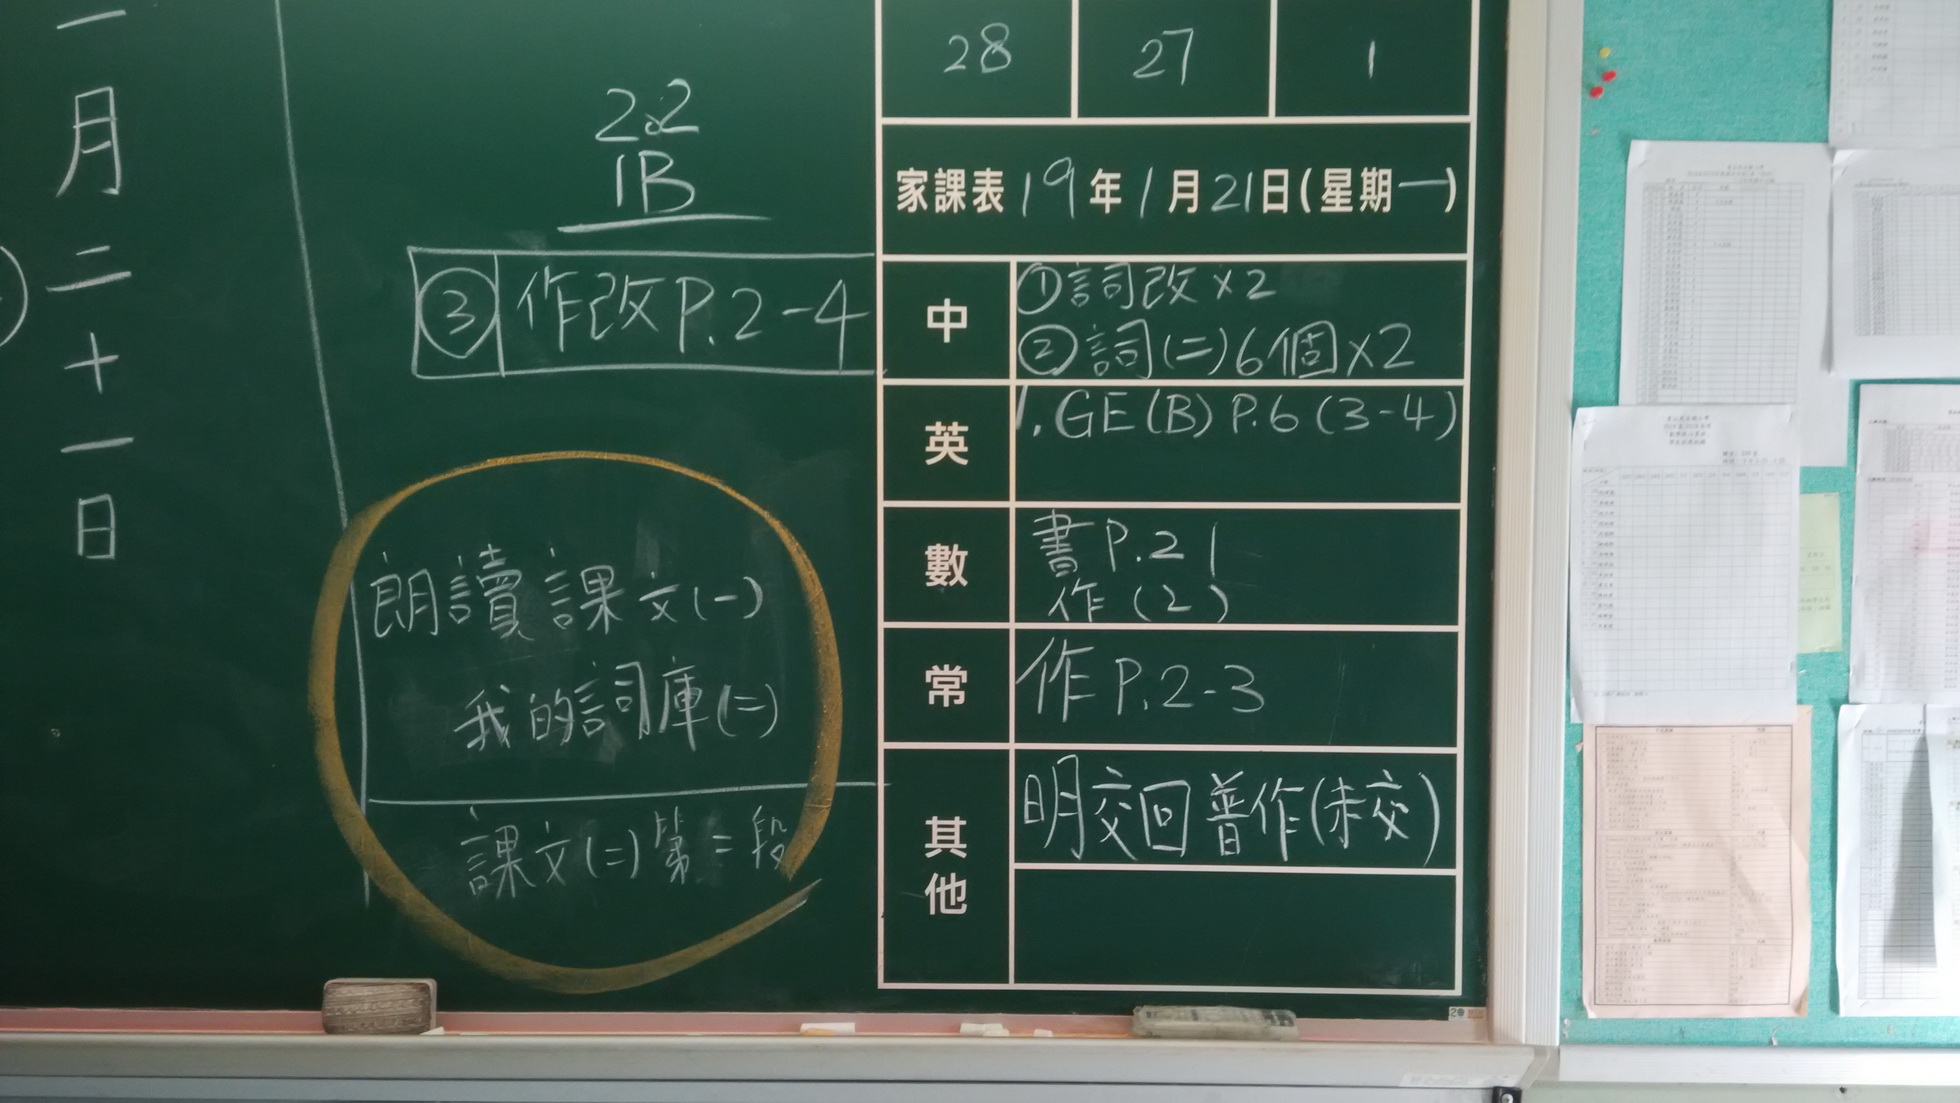 一月二十一日
2.2
1B
③ 作改P.2-4
朗讀課文(一)
我的詞庫(二)
課文(二)第二段
28 27 1
家課表19年1月21日(星期一)
中 ①詞改×2
②詞(二)6個×2
英 1.GE(B) P.6 (3-4)
數 書P.21
作(2)
常 作P.2-3
其他 明交回普作(未交)